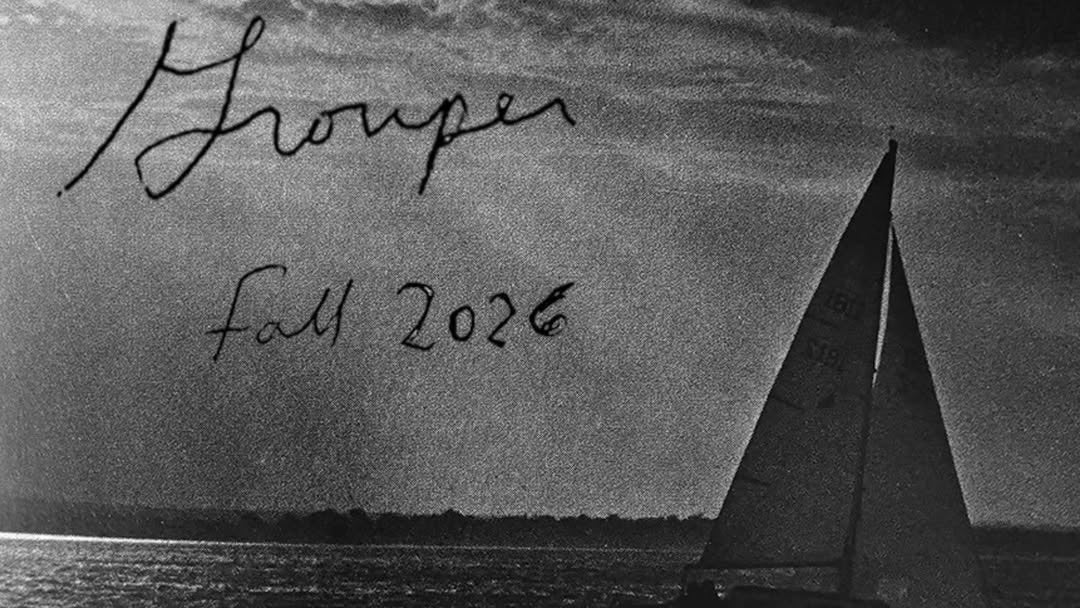 Grouper
Fall 2026